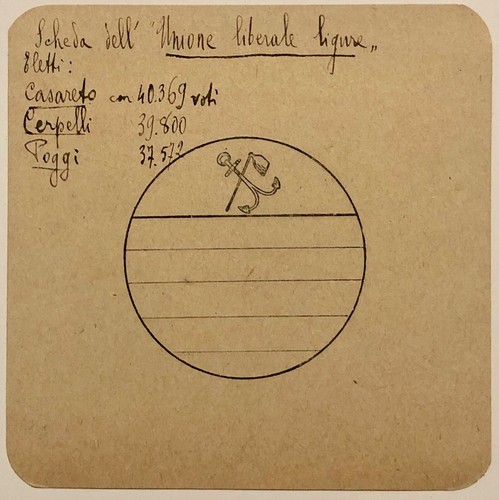 Scheda dell' "Unione liberale ligure„
Eletti:
Casareto con 40.369 voti
Cerpelli 39.800
Poggi 37.572